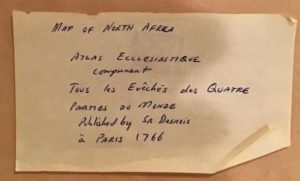 Map of North Africa
Atlas Ecclesiastique
comprenant
Tous les Evêchés des Quatre
Parties du Monde
Published by Sr Desnois
à Paris 1766